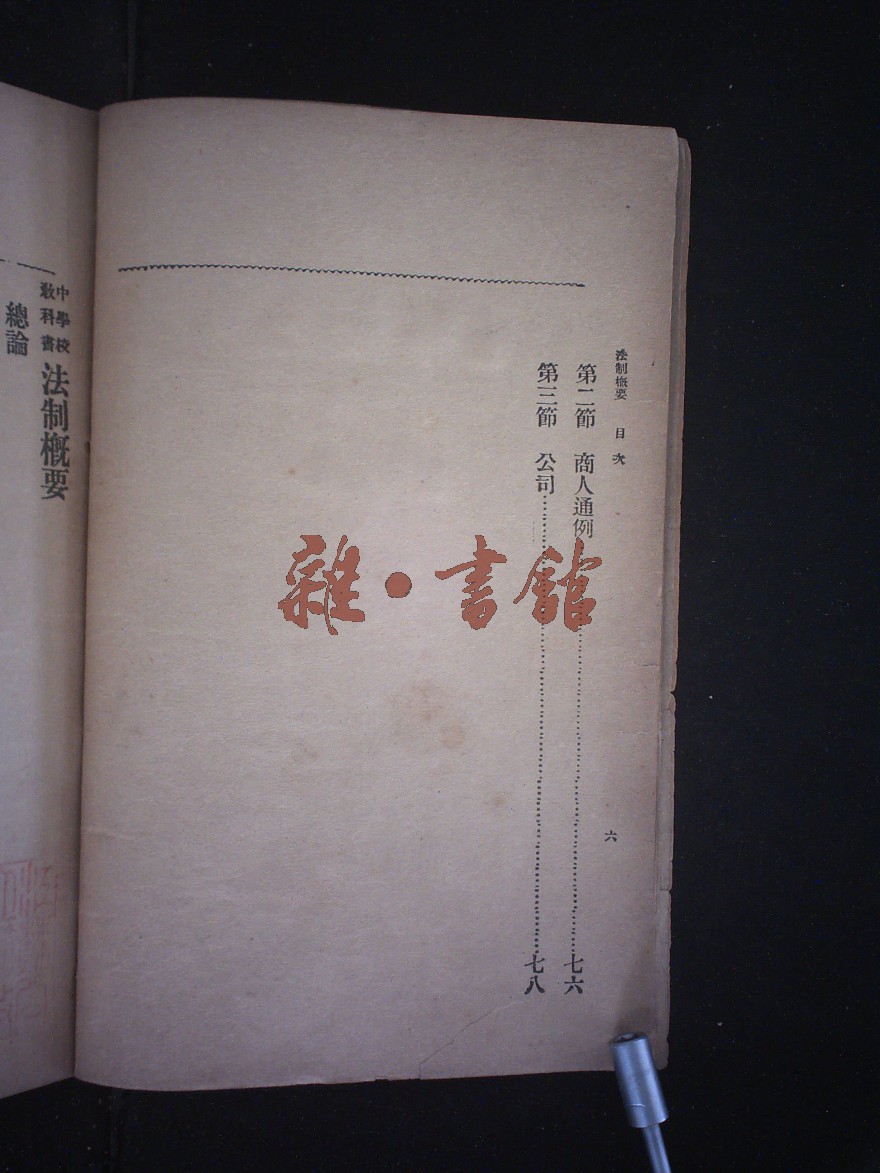 法制概要 目次 六
第二節 商人通例……七六
第三節 公司……七八
中學校
教科書
法制概要
總論
雜•書館